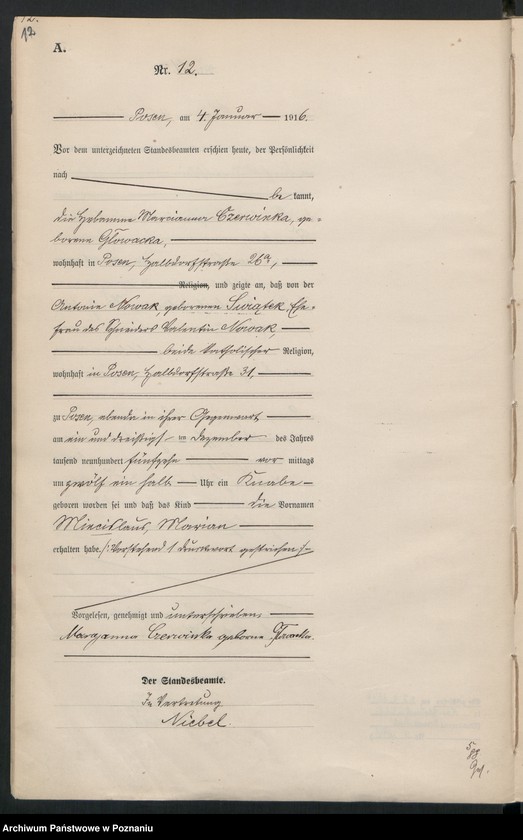 12.
12.
A.
Nr. 12.
Posen, am 4. Januar 1916.
Vor dem unterzeichneten Standesbeamten erschien heute, der Persönlichkeit
nach
be kannt,
die Hebamme Marcianna Czerwinka, ge=
borene Głowacka,
wohnhaft in Posen, Halbdorfstraße 26a,
Religion, und zeigte an, daß von der
Antonie Nowak geborenen Swiątek, Ehe=
frau des Schneiders Valentin Nowak,
beide katholischer Religion,
wohnhaft in Posen, Halbdorfstraße 31,
zu Posen, ebenda in ihrer Gegenwart
am ein und dreißigst en Dezember des Jahres
tausend neunhundert fünfzehn vor mittags
um zwölf ein halb Uhr ein Knabe
geboren worden sei und daß das Kind die Vornamen
Miecislaus, Marian
erhalten habe. /: Vorstehend 1 Druckwort gestrichen :/
Vorgelesen, genehmigt und unterschrieben
Maryanna Czerwinka geborne
Der Standesbeamte.
In Vertretung
Niebel.
Archiwum Państwowe w Poznaniu